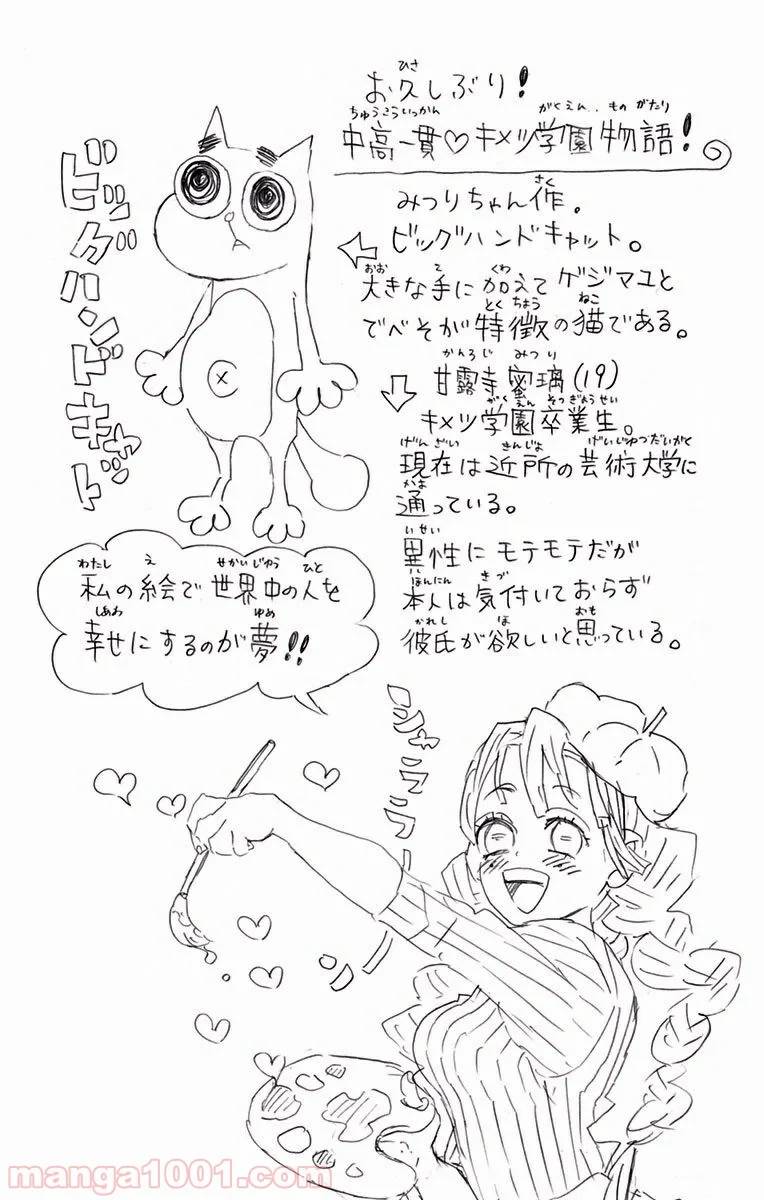 お久しぶり!
中高一貫♡キメツ学園物語!
みつりちゃん作。
ビッグハンドキャット。
大きな手に加えてゲジマユと
でべそが特徴の猫である。
甘露寺蜜璃(19)
キメツ学園卒業生。
現在は近所の芸術大学に
通っている。
異性にモテモテだが
本人は気付いておらず
彼氏が欲しいと思っている。
ビッグハンドキャット
私の絵で世界中の人を
幸せにするのが夢!!
シャララーン
manga1001.com